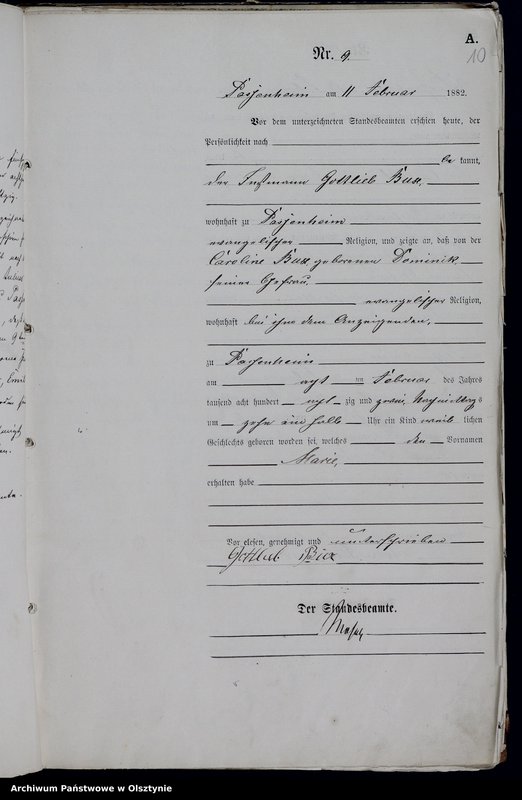 A.
10
Nr. 9.
Passenheim am 11 Februar 1882.
Vor dem unterzeichneten Standesbeamten erschien heute, der
Persönlichkeit nach
be kannt,
der Instmann Gottlieb Bux,
wohnhaft zu Passenheim
evangelischer Religion, und zeigte an, daß von der
Caroline Bux geborenen Dominik,
seiner Ehefrau,
evangelischer Religion,
wohnhaft bei ihm dem Anzeigenden,
zu Passenheim
am acht ten Februar des Jahres
tausend acht hundert acht zig und zwei, Nachmittags
um zehn ein halb Uhr ein Kind weib lichen
Geschlechts geboren worden sei, welches den Vornamen
Marie,
erhalten habe
Vorgelesen, genehmigt und unterschrieben
Gottlieb
Der Standesbeamte.
Archiwum Państwowe w Olsztynie